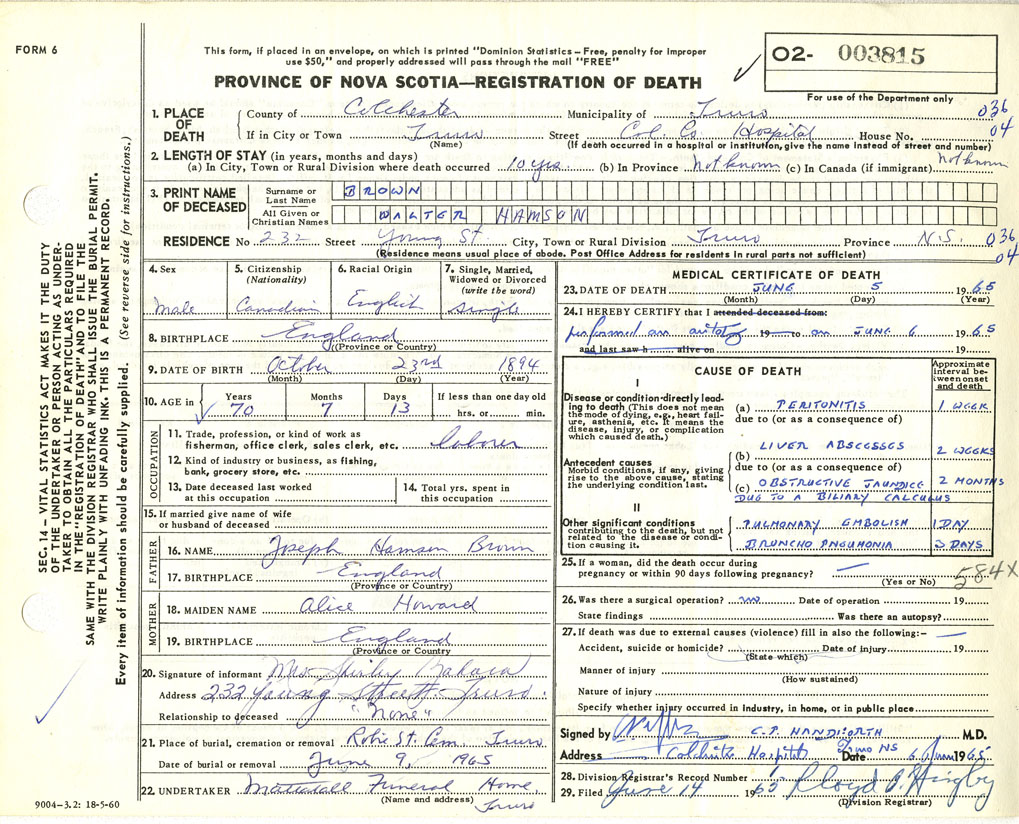 FORM 6
This form, if placed in an envelope, on which is printed "Dominion Statistics – Free, penalty for improper
use $50," and properly addressed will pass through the mail "FREE"
PROVINCE OF NOVA SCOTIA—REGISTRATION OF DEATH
O2- 003815
For use of the Department only
SEC. 14 – VITAL STATISTICS ACT MAKES IT THE DUTY
OF THE UNDERTAKER OR PERSON ACTING AS UNDER-
TAKER TO OBTAIN ALL THE PARTICULARS REQUIRED
IN THE "REGISTRATION OF DEATH" AND TO FILE THE
SAME WITH THE DIVISION REGISTRAR WHO SHALL ISSUE THE BURIAL PERMIT.
WRITE PLAINLY WITH UNFADING INK. THIS IS A PERMANENT RECORD.
Every item of information should be carefully supplied. (See reverse side for instructions.)
1. PLACE OF DEATH
County of Colchester Municipality of Truro 036
If in City or Town Truro Street Col. Co. Hospital House No. 04
(Name) (If death occurred in a hospital or institution, give the name instead of street and number)
2. LENGTH OF STAY (in years, months and days)
(a) In City, Town or Rural Division where death occurred 10 yrs. (b) In Province Not known (c) In Canada (if immigrant) Not known
3. PRINT NAME OF DECEASED
Surname or Last Name BROWN
All Given or Christian Names WALTER HAMSON
RESIDENCE No 232 Street Young St City, Town or Rural Division Truro Province N.S. 036
04
(Residence means usual place of abode. Post Office Address for residents in rural parts not sufficient)
4. Sex
Male
5. Citizenship
(Nationality)
Canadian
6. Racial Origin
English
7. Single, Married,
Widowed or Divorced
(write the word)
single
8. BIRTHPLACE England
(Province or Country)
9. DATE OF BIRTH October 23rd 1894
(Month) (Day) (Year)
10. AGE in Years Months Days If less than one day old
70 7 13 hrs. or min.
OCCUPATION
11. Trade, profession, or kind of work as
fishermen, office clerk, sales clerk, etc. laborer
12. Kind of industry or business, as fishing,
bank, grocery store, etc.
13. Date deceased last worked
at this occupation
14. Total yrs. spent in
this occupation
15. If married give name of wife
or husband of deceased
FATHER
16. NAME Joseph Hamson Brown
17. BIRTHPLACE England
(Province or Country)
MOTHER
18. MAIDEN NAME Alice Howard
19. BIRTHPLACE England
(Province or Country
20. Signature of informant Mrs Shirley
Address 232 Young Street Truro.
Relationship to deceased "None"
21. Place of burial, cremation or removal Robie St. Cem. Truro
Date of burial or removal June 9, 1965
22. UNDERTAKER Mattatall Funeral Home,
(Name and address) Truro
9004–3.2: 18-5-60
MEDICAL CERTIFICATE OF DEATH
23. DATE OF DEATH JUNE 5 1965
(Month) (Day) (Year)
24. I HEREBY CERTIFY that I attended deceased from:
performed an 19 to on JUNE 6 1965
and last saw h alive on 19
CAUSE OF DEATH
Approximate
interval be-
tween onset
and death
I
Disease or condition directly lead-
ing to death (This does not mean
the mode of dying, e.g., heart fail-
ure, asthenia, etc. It means the
disease, injury, or complication
which caused death.)
(a) PERITONITIS 1 WEEK
due to (or as a consequence of)
Antecedent causes
Morbid conditions, if any, giving
rise to the above cause, stating
the underlying condition last.
(b) LIVER ABSCESSES 2 WEEKS
due to (or as a consequence of)
(c) OBSTRUCTIVE JAUNDICE 2 MONTHS
DUE TO A BILIARY CALCULUS
II
Other significant conditions
contributing to the death, but not
related to the disease or condi-
tion causing it.
PULMONARY EMBOLISM 1 DAY
BRONCHO PNEUMONIA 3 DAYS
25. If a woman, did the death occur during
pregnancy or within 90 days following pregnancy? —
(Yes or No) 584X
26. Was there a surgical operation? no Date of operation 19
State findings Was there an autopsy?
27. If death was due to external causes (violence) fill in also the following:– —
Accident, suicide or homicide? Date of injury 19
(State which)
Manner of injury
(How sustained)
Nature of injury
Specify whether injury occurred in industry, in home, or in public place
Signed by C.P. HANDFORTH M.D.
Address Colchester Hospital Truro NS Date 6 June 1965
28. Division Registrar's Record Number
29. Filed June 14 1965 Lloyd
(Division Registrar)